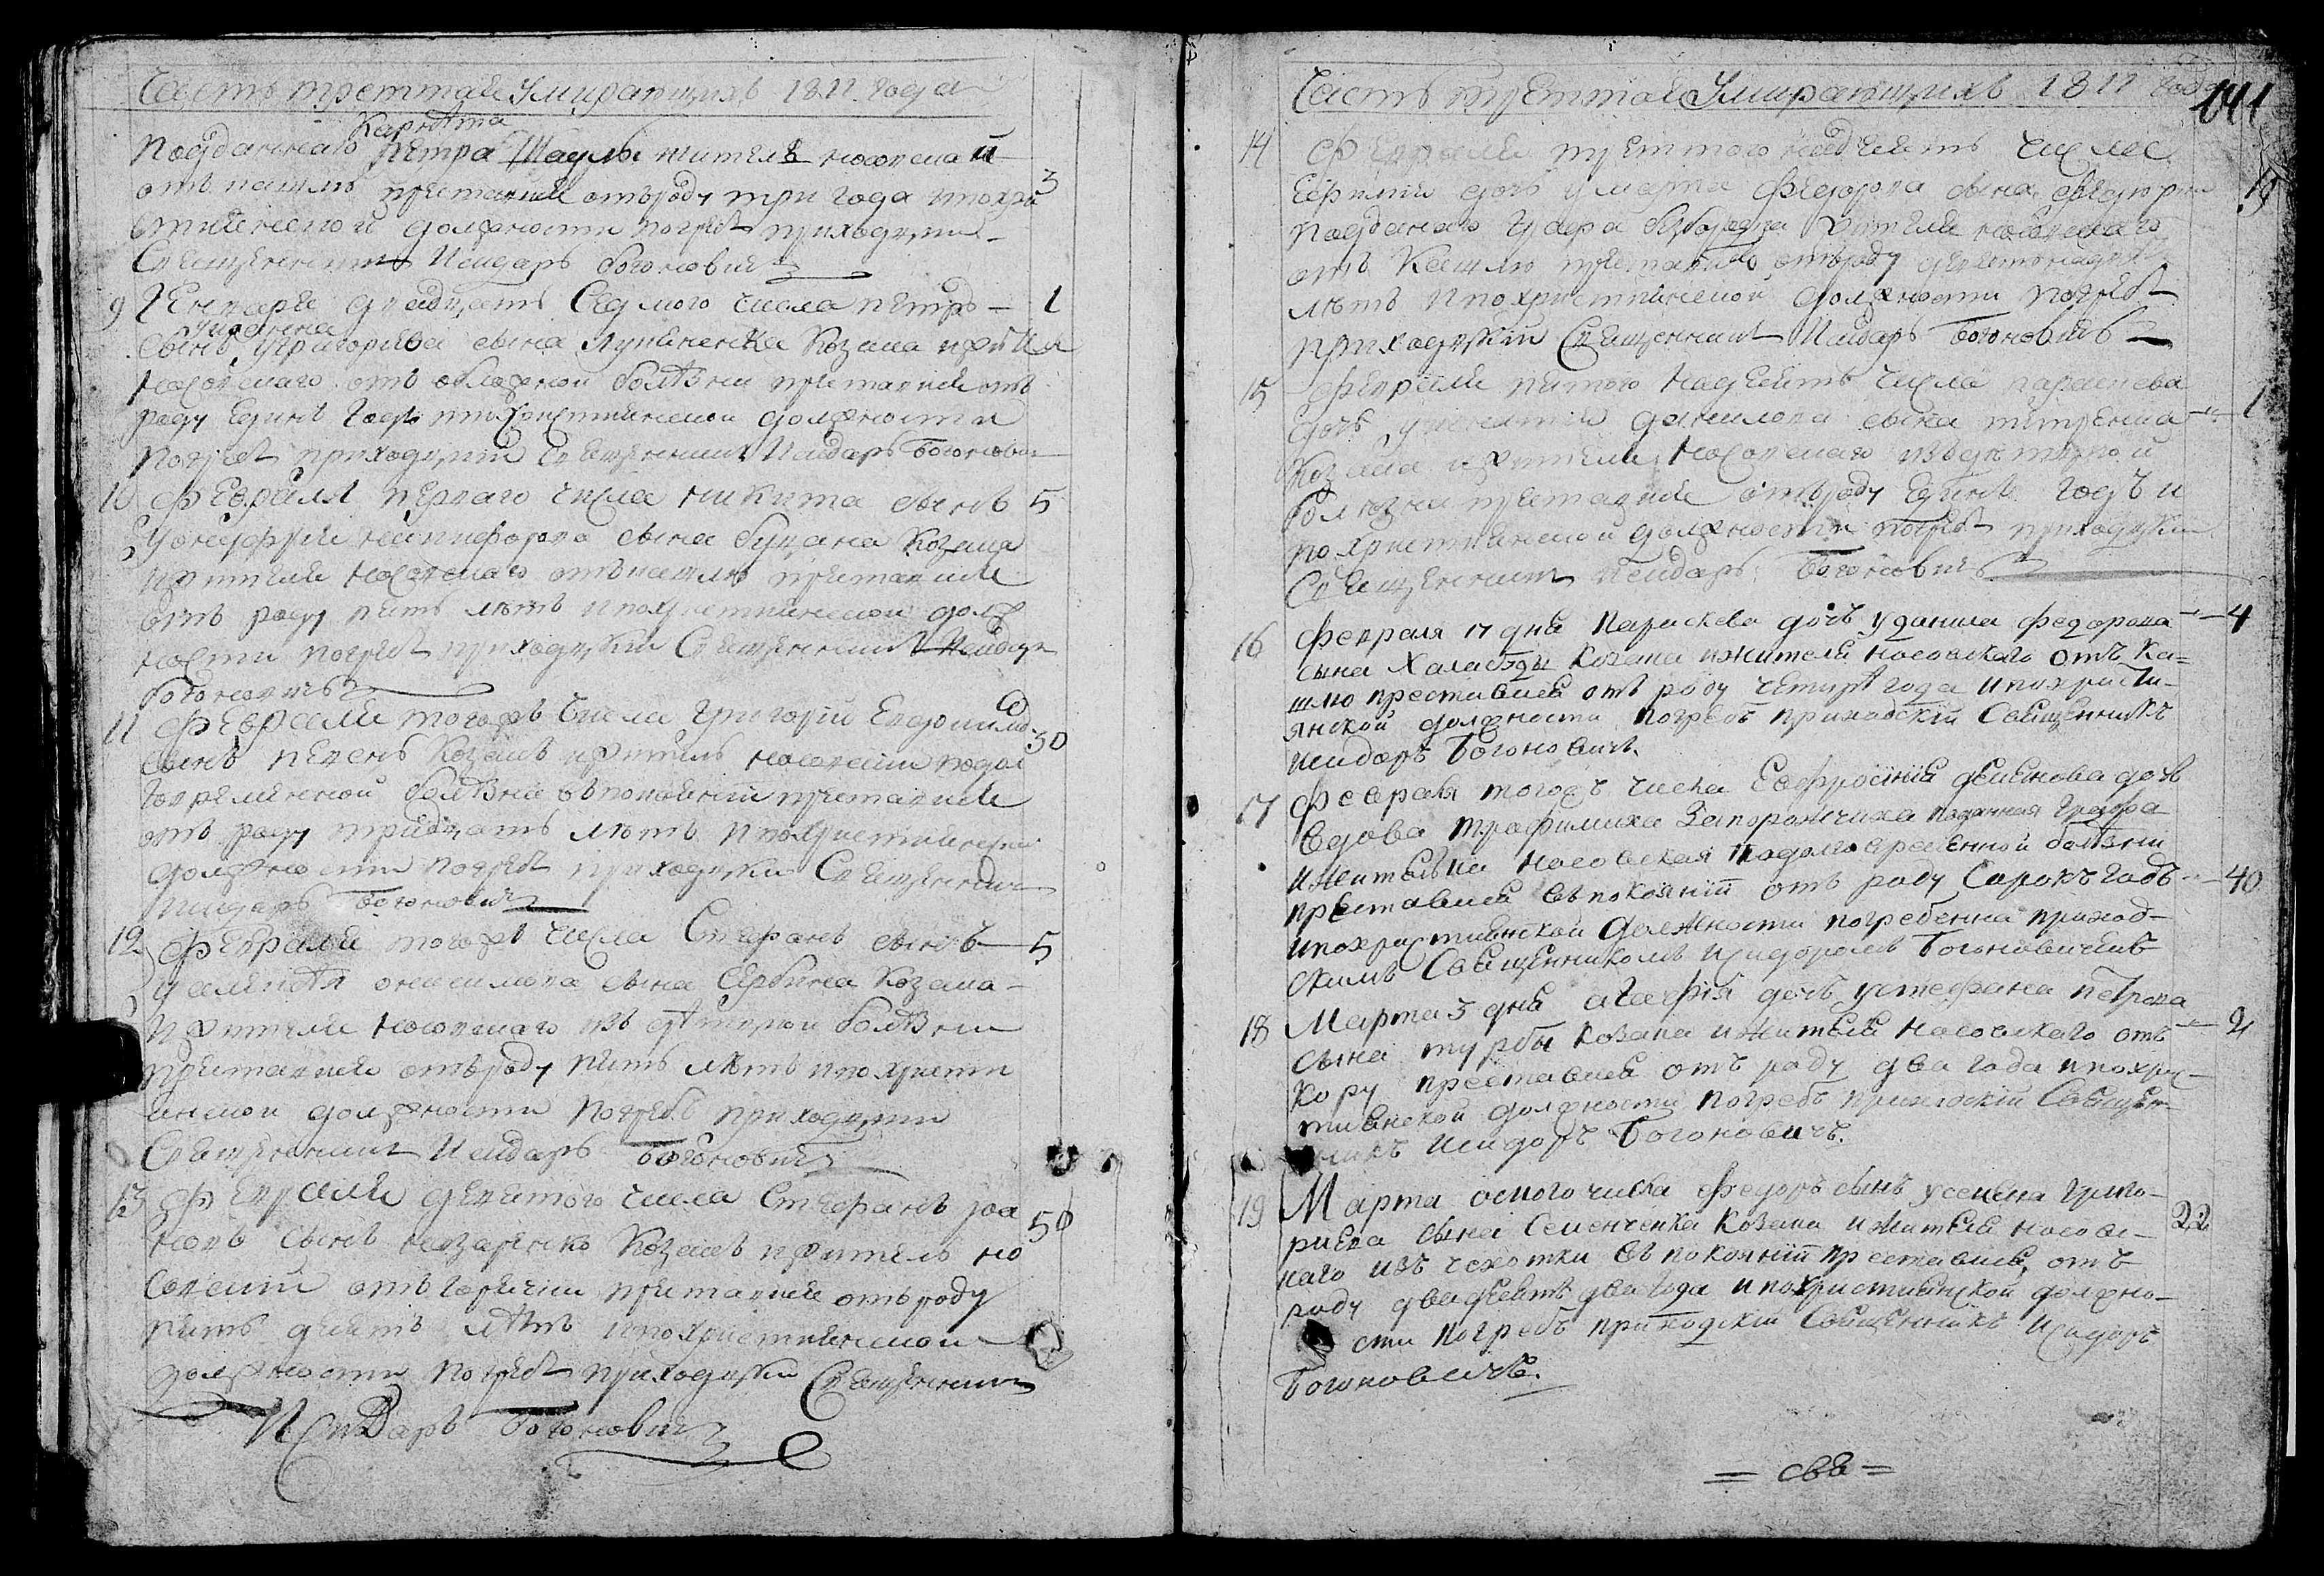 Часть треттая Умирающихъ 1811 года
Карпѣта
подданнаго Петра жителѣ носовской
отъ кашлю преставися отъ роду три года и по хри 3
стиянской должности погребъ приходский
Священникъ Исидоръ Богоновичъ
9 Генваря двадцать Седмого числа петръ 1
сынъ у григориева сына Лупиненка Козака и жителя
носовского отъ обложной болѣзни преставися отъ
роду единъ годъ и по християнской должности
погребъ приходский Священникъ Исидоръ Богонович
10 Февраля первого числа никита сынъ 5
у онуфрия никифорова сына буцана Козака
и жителя носовского отъ кашлю преставися
отъ роду пять лѣтъ и по християнской долж
ности погребъ приходский Священникъ Исидор
Богоновичъ
11 Февраля тогожъ числа григорий Евдокимов 30
сынъ Козакъ и житель носовский подол
говременной болѣзни въ покаянии преставися
отъ роду тридцать лѣтъ и по християнской
должности погребъ приходский Священник
Исидоръ Богонович
12 Февраля тогожъ числа Стефанъ сынъ 5
у онисимова сына Сербина Козака
и жителя носовского изъ болѣзни
преставися отъ роду пять лѣтъ и по христи
янской должности погребъ приходский
Священникъ Исидоръ Богоновичъ
13 Февраля девятого числа Стефанъ Іоа
новъ сынъ назаренко Козакъ и житель но 50
совский отъ горячки преставися отъ роду
пять десятъ лѣтъ и по християнской
должности погребъ приходский Священникъ
Исидоръ Богоновичъ
Часть треттая Умирающихъ 1811 года 141
14 Февраля треттого надцять числа
дочь умерла Федорова сына
подданого графа безбородка жителя носовского 19
отъ Кашлю преставися отъ роду девятонадцять
лѣтъ и по християнской должности погребъ
приходский Священникъ Исидоръ Богоновичъ
15 Февраля пятого надцять числа параскева
дочь у игнатия данилова сына 1
Козака и жителя носовского изъ
болѣзни преставися отъ роду единъ годъ и
по християнской должности погребъ приходский
Священникъ Исидоръ Богоновичъ
16 Февраля 17 дня Параскева дочь у данила федорова 4
сына Халабуди Козака и жителя носовского отъ ка=
шлю преставися отъ роду четирѣ года и по христи-
янской должности погребъ приходский Священникъ
Исидоръ Богоновичъ.
17 Февраля тогожъ числа Евфросинія семенова дочь
Вдова Трофимиха Запорожчиха подданная графа
и жителька носовская подолговременной болѣзни
преставися въ покаянїи отъ роду Сорокъ годъ 40
и по християнской должности погребенна приход-
скимъ Священникомъ Исидоромъ Богоновичемъ
18 Марта 5 дня агафія дочь у стефана петрова
сына турбы козака и жителя носовского отъ 2
кору преставися отъ роду два года и по хрис-
тиянской должности погребъ приходский Священ-
никъ Исидоръ Богоновичъ.
19 Марта осмого числа федоръ сынъ у семена григо-
риева сына Семенченка козака и жителя носов- 22
ского изъ чехотки въ покаянїи преставися отъ
роду двадцять два года и по християнской должно-
сти погребъ приходский Священникъ Исидоръ
Богоновичъ.